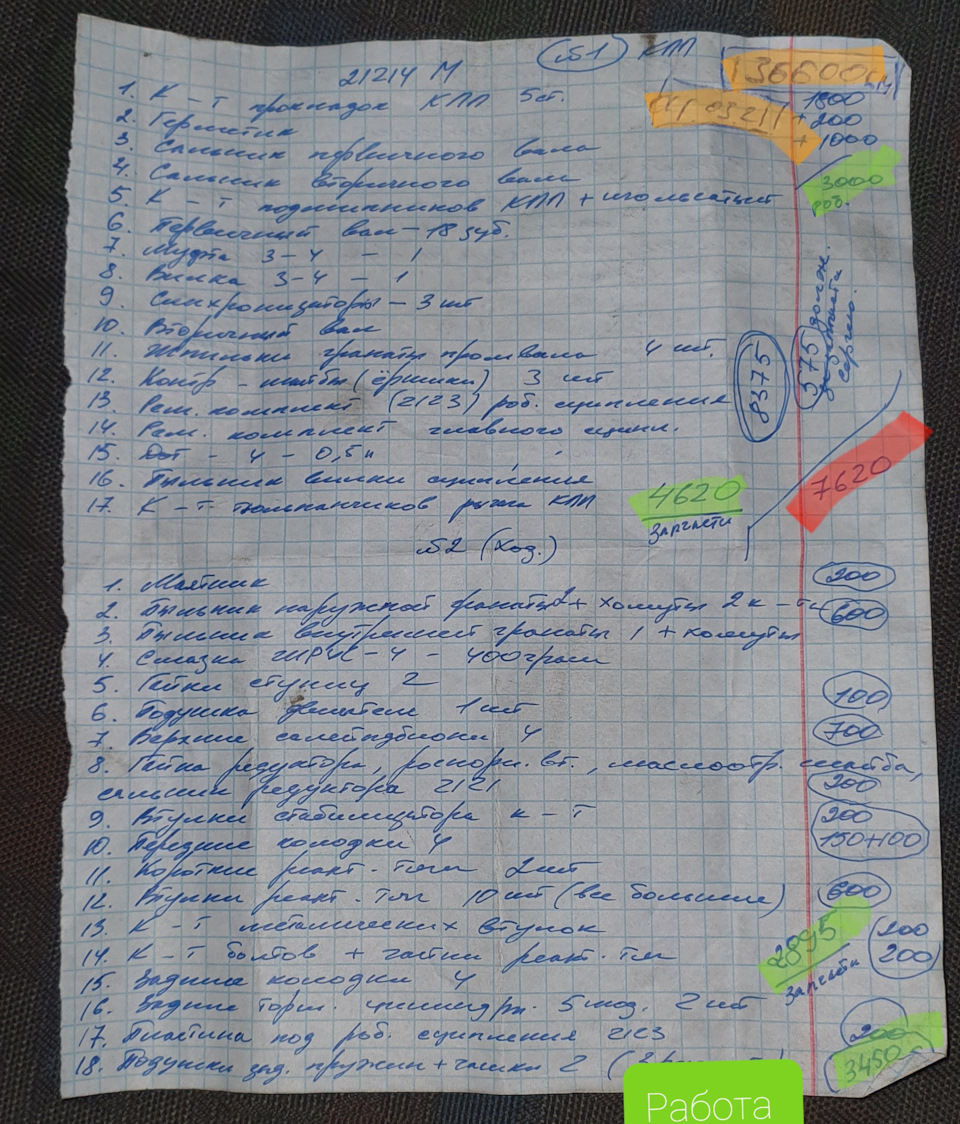 21214 М
№1 КПП
136600 км
1. К-т прокладок КПП 5ст.
1800
2. Герметик
+ 200
3. Сальник первичного вала
+ 1000
4. Сальник вторичного вала
3000
раб.
5. К-т подшипников КПП + игольчатый
6. Первичный вал - 18 зуб.
7. Муфта 3-4 - 1
8. Вилка 3-4 - 1
9. Синхронизаторы - 3 шт
10. Вторичный вал
11. Шпильки гранаты промвала 4 шт.
12. Контр-шайбы (ёршики) 3 шт
8375
375 должен
Сергею.
13. Рем. комплект (2123) раб. сцепления
14. Рем. комплект главного сцепл.
15. Дот - 4 - 0,5л
16. Пыльник вилки сцепления
7620
17. К-т тюльпанчиков рычага КПП
4620
Запчасти
№2 (Ход.)
1. Маятник
200
2. Пыльник наружной гранаты 2 + хомуты 2 к-та
600
3. Пыльник внутренней гранаты 1 + хомуты
4. Смазка ШРУС-4 - 400 грам
5. Гайки ступиц 2
100
6. Подушка двигателя 1 шт
700
7. Верхние сайлентблоки 4
8. Гайка редуктора, распорн. вт., маслоотр. шайба,
сальник редуктора 2121
200
9. Втулки стабилизатора к-т
200
10. Передние колодки 4
150+100
11. Короткие реакт. тяги 2 шт
12. Втулки реакт. тяг 10 шт (все большие)
600
13. К-т металических втулок
2895
Запчасти
200
14. К-т болтов + гайки реакт. тяг
200
15. Задние колодки 4
16. Задние торм. цилиндры. 5 мод. 2 шт
17. Пластина под раб. сцепления 2123
200
18. Подушки зад. пружин + чашки 2
3450
Работа